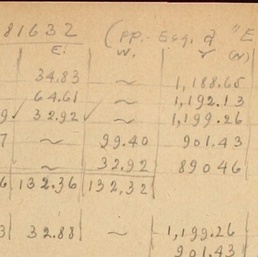 81632 (pp. Esq. of "E
E. W. r (N)
34.83 ~ 1,188.65
64.61 ~ 1,192.13
9 32.92 ~ 1,199.26
7 ~ 99.40 901.43
~ 32.92 890.46
6 132.36 132,32
3 32.88 ~ 1,199.26
901.43